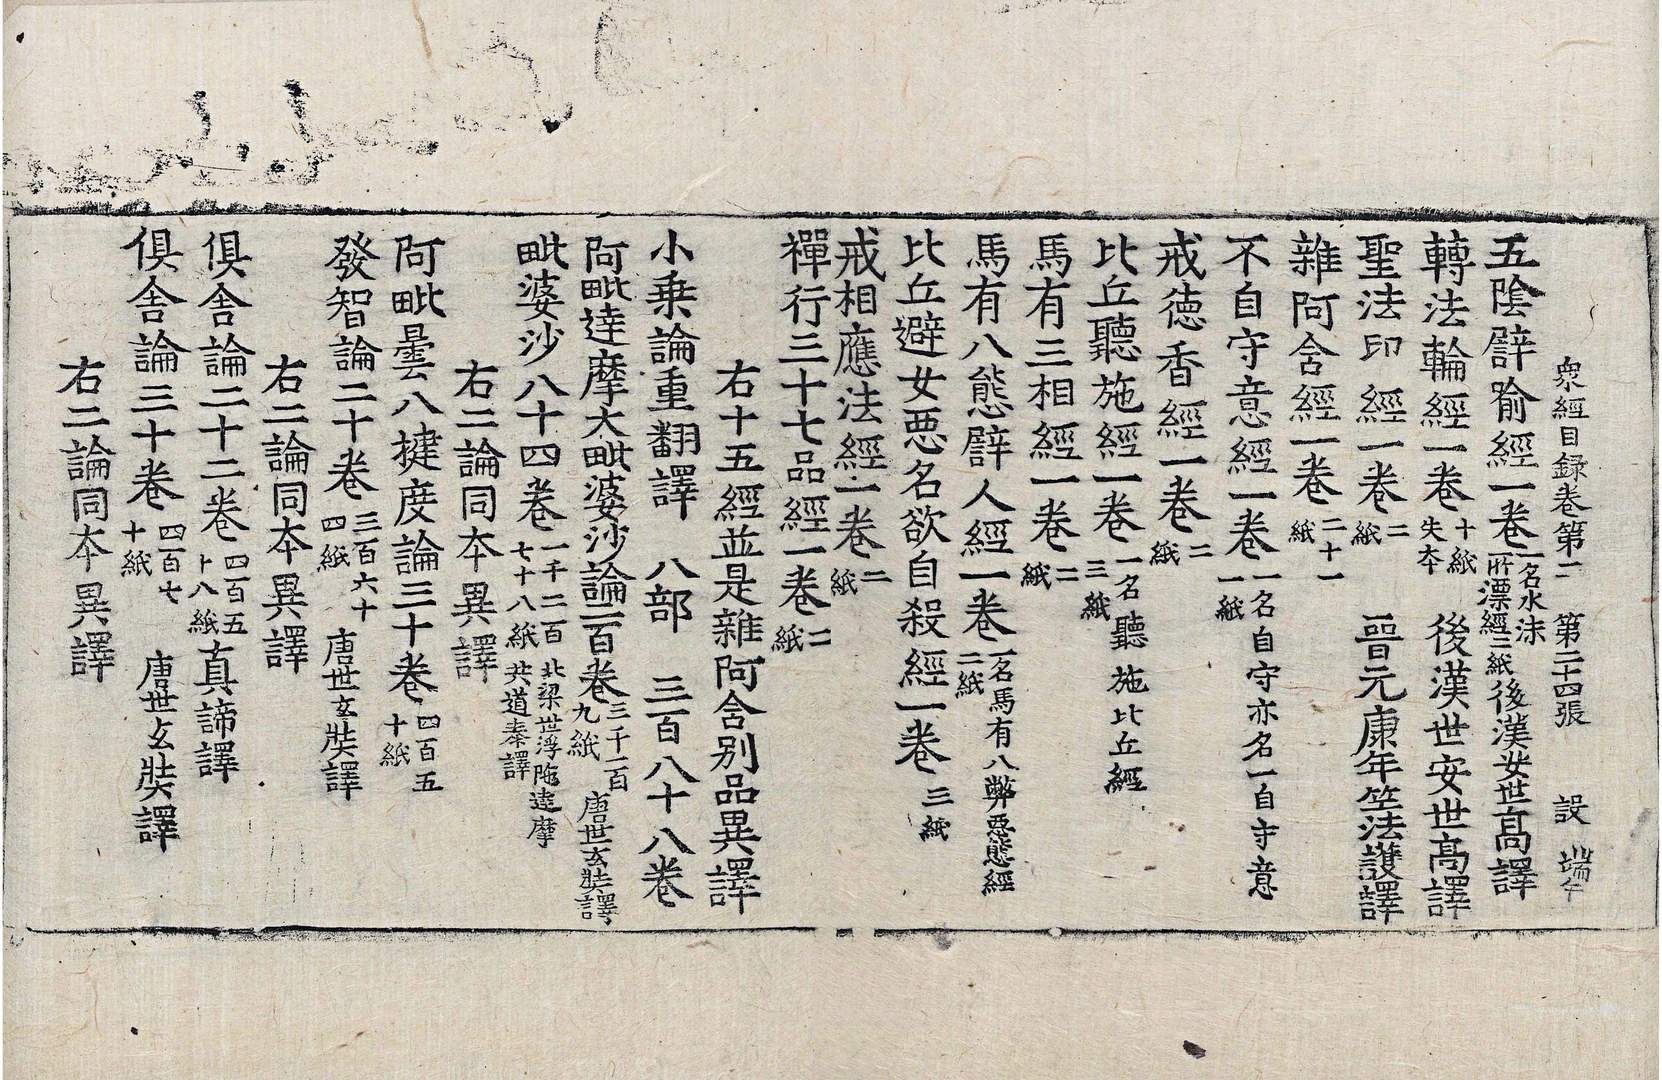 衆經目録卷第二 第二十四張 設 端午
五陰譬喻經一卷 一名水沫所漂經二紙 後漢世安世高譯
轉法輪經一卷 十紙失本 後漢世安世高譯
聖法印經一卷 二紙 晉元康年竺法護譯
雜阿含經一卷 二十一紙
不自守意經一卷 一名自守亦名一自守意一紙
戒德香經一卷 二紙
比丘聽施經一卷 一名聽施比丘經三紙
馬有三相經一卷 二紙
馬有八態譬人經一卷 一名馬有八弊惡態經二紙
比丘避女惡名欲自殺經一卷 三紙
戒相應法經一卷 二紙
禪行三十七品經一卷 二紙
右十五經並是雜阿含別品異譯
小乘論重翻譯 八部 三百八十八卷
阿毗達摩大毗婆沙論二百卷 三千一百九紙 唐世玄奘譯
毗婆沙八十四卷 一千二百七十八紙 北梁世浮陁達摩共道泰譯
右二論同本異譯
阿毗曇八揵度論三十卷 四百五十紙
發智論二十卷 三百六十四紙 唐世玄奘譯
右二論同本異譯
俱舍論二十二卷 四百五十八紙 真諦譯
俱舍論三十卷 四百七十紙 唐世玄奘譯
右二論同本異譯